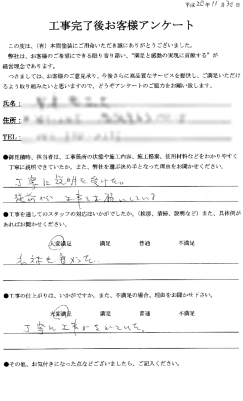 平成20年11月30日
工事完了後お客様アンケート
この度は、(有)本間塗装にご用命いただき誠にありがとうございました。
弊社は、お客様のご希望にできる限り寄り添い、"満足と感動の実現に貢献する"が
経営理念であります。
つきましては、お客様のご意見承り、今後さらに高品質なサービスを提供し、ご満足いただけ
るよう取り組みたいと思いますので、どうぞアンケートのご協力をお願い致します。
氏名:
住所:
TEL:
●御見積時、担当者は、工事箇所の状態や施工内容、施工提案、使用材料などをわかりやすく
丁寧に説明できていたか。また、弊社を選ぶ決め手となった理由をお聞かせください。
丁寧に説明を受けた。
●工事を通してのスタッフの対応はいかがでしたか。(挨拶、清掃、説明など)また、具体例が
あればお聞かせください。
大変満足 満足 普通 不満足
●工事の仕上がりは、いかがですか。また、不満足の場合、理由をお聞かせ下さい。
大変満足 満足 普通 不満足
丁寧に工事がされていた。
●その他、お気付きになった点などございましたら、ご記入ください。